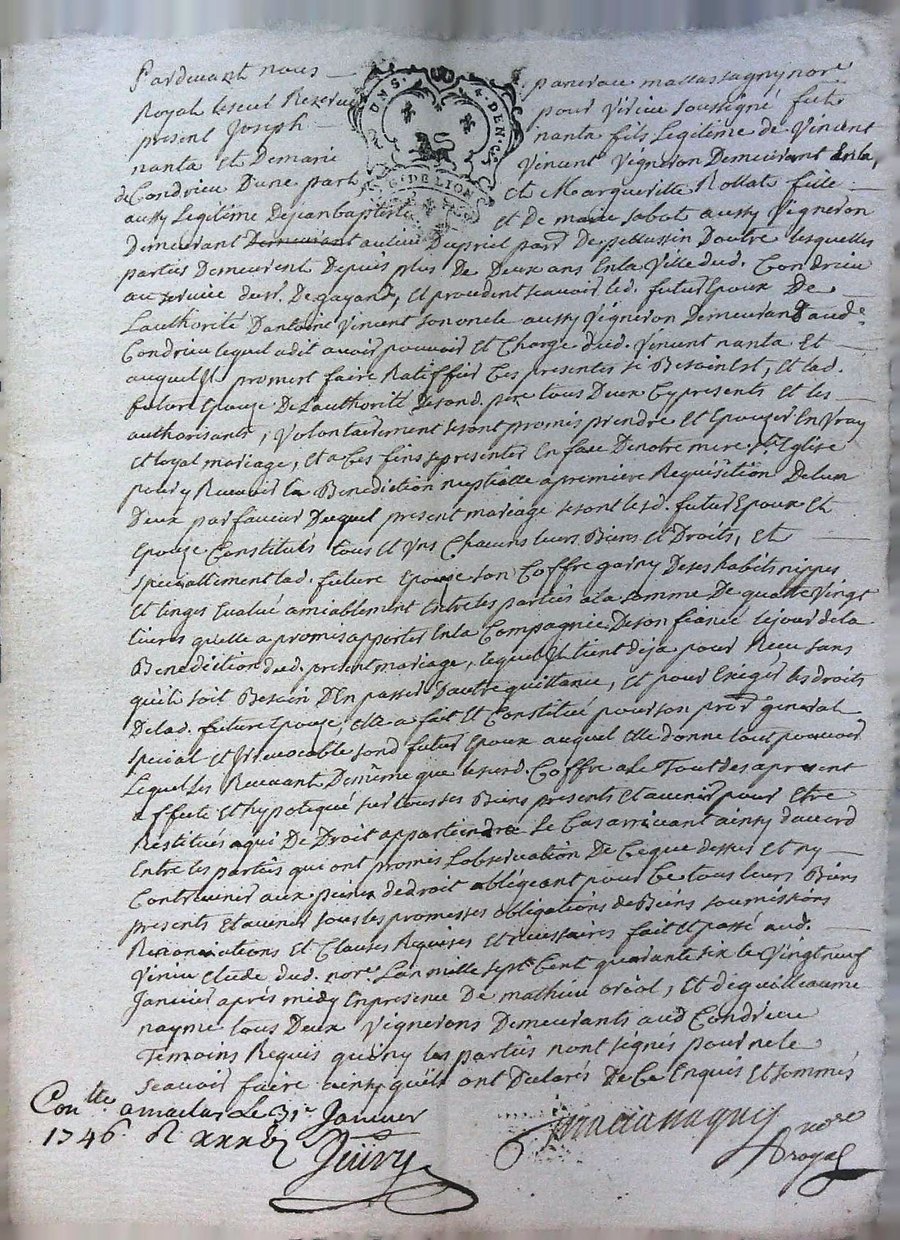 Pardevant nous pancrace massassagny nore
Royal le seul Rezervé pour Virieu soussigné fut
present Joseph nanta fils Legitime de Vincent
nanta et Demarie Vincent Vigneron Demeurant Enla
de Condrieu Dune part et Margueritte Rollat fille
aussy Legitime Dejeanbaptiste et De marie sabot aussy Vigneron
Demeurant Demeurant au lieu Dupriel parr Depellussin Doutre lesquelles
parties Demeurent Depuis plus De Deux ans Enla Ville dud. Condrieu
au service dusr. De gayand, et procedent scavoir led. futur Epoux De
Lauthorité Dantoine Vincent son oncle aussy Vigneron Demeurand aude
Condrieu lequel adit avoir pouvoir Et Charge dud. Vincent nanta Et
auquel Il promert faire Ratiffier Ces presentes si Besoin Est, Et lad.
future Epouze De Lauthorité desond. pere tous Deux Cy presents Et les
authorisants, Volontairement sesont promis prendre Et Epouzer En Vray
Et loyal mariage, et a Ces fins sepresenter En face Denotre mere ste Eglise
pour y Recevoir la Benediction nuptialle a premiere Requisition Delun
Deux par faveur Duquel present mariage sesont lesd. futur Epoux Et
Epouze Constitués tous Et Uns Chacuns leurs Biens Et Droits, Et
speciallement lad. future Epouze son Coffre garny Deses habits nippes
Et linges Evalué amiablement Entre les parties ala somme De quatre Vingt
livres quelle a promis apporter Enla Compagnie Deson fiancé lejour dela
Benediction dud. present mariage, lequel Il tient deja pour Recu sans
quil soit Besoin DEn passer Dautre quittance, Et pour Exiger les droits
Delad. future Epouze, Elle a fait Et Constitué pour son procr general
special et Irrevocable sond futur Epoux auquel Elle donne tout pouvoir
Lequel les Recevant Demême que lesusd. Coffre a le Tout des apresent
affecté Et hypotequé sur tous ses Biens presents Et avenir pour Etre
Restitués aqui De Droit appartiendra le Cas arrivant ainsy daccord
Entre les parties qui ont promis Lobservation De Ceque dessus Et ny
Contrevenir aux peines dedroit obligeant pour Ce tous leurs Biens
presents Et avenir sous les promesses obligations de Biens soumissions
Renonciations Et Clauses Requises Et necessaires fait Et passé aud.
Virieu Etude dud. nore. Lan mille sept Cent quarante six le Vingt neuf
Janvier apres midy En presence De mathieu oriol, Et Deguilleaume
nayme tous Deux Vignerons Demeurants aud Condrieu
Temoins Requis quiny les parties nont signés pour nele
scavoir faire ainsy quils ont Declarés De Ce Enquis Et sommés
Conlle amaclas Le 31e Janvier
1746
nore
royal
DNS. 4. DEN. C.
G. DE LION